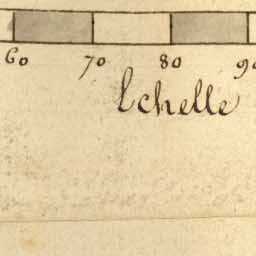 60 70 80 90
Echelle